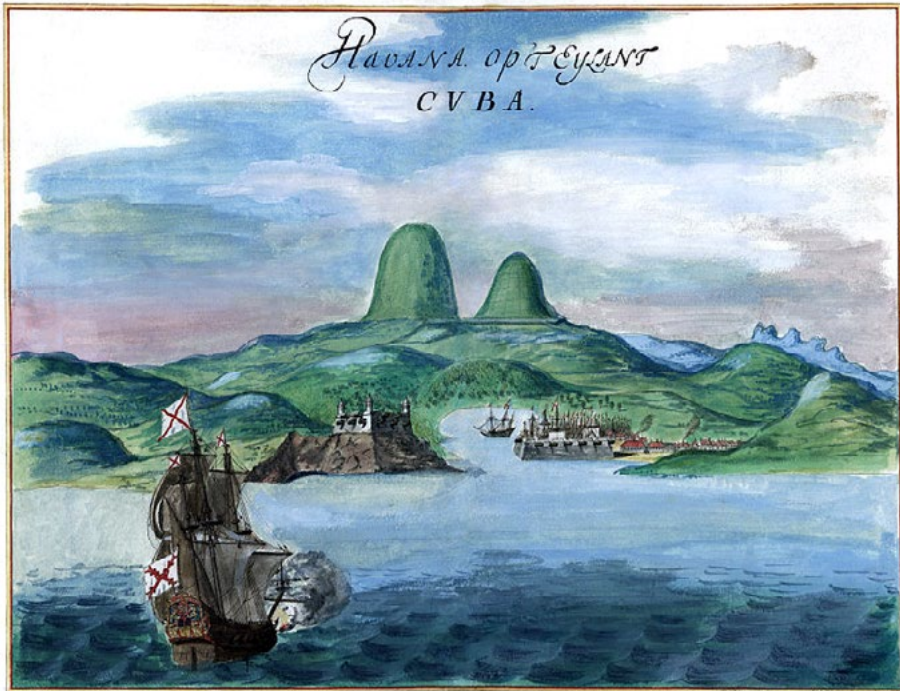 Havana. op T Eylant
CVBA.